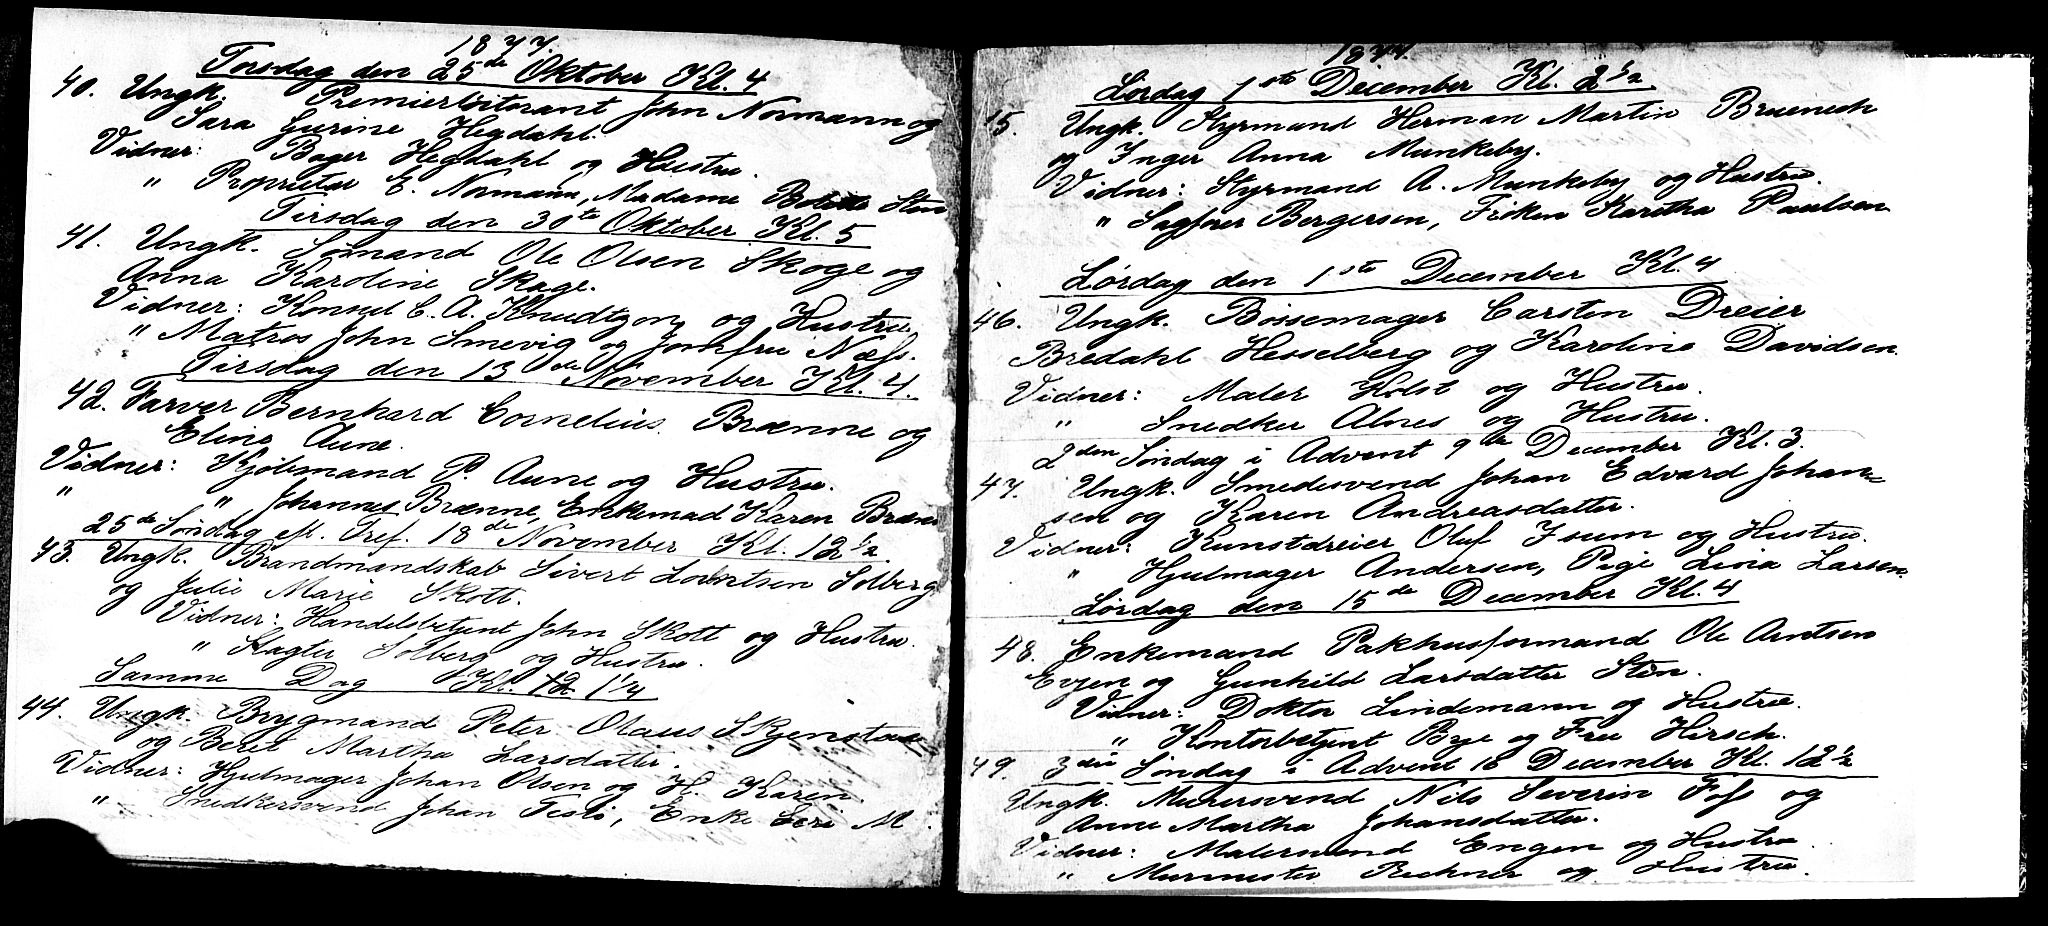 1877.
Torsdag den 25de Oktober Kl. 4
40. Ungk. Premierløitenant John Normann og
Sara Gurine Hegdahl.
Vidner: Bager Hegdahl og Hustru.
" Proprietær E. Normann, Madame Sten
Tirsdag den 30te Oktober Kl. 5
41. Ungk. Sømand Ole Olsen Skage og
Anna Karoline Skage.
Vidner: Konsul C. A. Knudtzon og Hustru
" Matros John Smevig og Jomfru Næss.
Tirsdag den 13de November Kl. 4.
42. Farver Bernhard Cornelius Brænne og
Eline Aune.
Vidner: Kjøbmand P. Aune og Hustru.
" " Johannes Brænne, Enkemad Karen Brænne
25de Søndag eft. Tref. 18de November Kl. 12 1/2
43. Ungk. Brandmandskab Sivert Lorntsen Solberg
og Julie Marie Skott.
Vidner: Handelsbetjent John Skott og Hustru.
" Slagter Solberg og Hustru.
Samme Dag Kl. 12 1 1/4
44. Ungk. Brygmand Peter Olaus Skjenstad
og Beret Martha Larsdatter.
Vidner: Hjulmager Johan Olsen og H. Karen
" Snedkersvend Johan , Enke M.
1877.
Lørdag 1ste December Kl. 2 1/2
15. Ungk. Styrmand Herman Martin Bruenech
og Inger Anna Munkeby.
Vidner: Styrmand A. Munkeby og Hustru.
" Sagfører Bergersen, Frøken Karitha Paulsen
Lørdag den 1ste December Kl. 4
46. Ungk. Bøssemager Carsten Dreier
Bredahl Hesselberg og Karoline Davidsen.
Vidner: Maler Holst og Hustru.
" Snedker Alnes og Hustru.
2den Søndag i Advent 9de December Kl. 3.
47. Ungk. Smedesvend Johan Edvard Johan=
sen og Karen Andreasdatter.
Vidner: Kunstdreier Oluf Isum og Hustru.
" Hjulmager Andersen, Pige Lina Larsen.
Lørdag den 15de December Kl. 4
48. Enkemand Pakhusformand Ole Arntsen
Evjen og Gunhild Larsdatter Stén.
Vidner: Doktor Lindemann og Hustru.
" Kontorbetjent Bye og Fru Hirsch.
49. 3die Søndag i Advent 16 December Kl. 12 1/2
Ungk. Murersvend Nils Severin Foss og
Anne Martha Johansdatter.
Vidner: Malersvend Engen og Hustru.
" Murmester Bechner og Hustru.